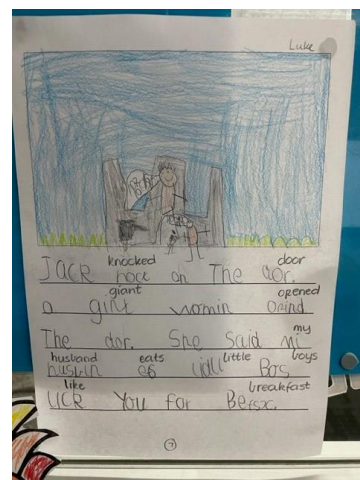 Luke
knocked door
Jack nock on The dor.
giant opened
a gint womin opind
my
The dor. She said mi
husband eats little boys
husbin ets lidll Bos
like breakfast
lick You for
7